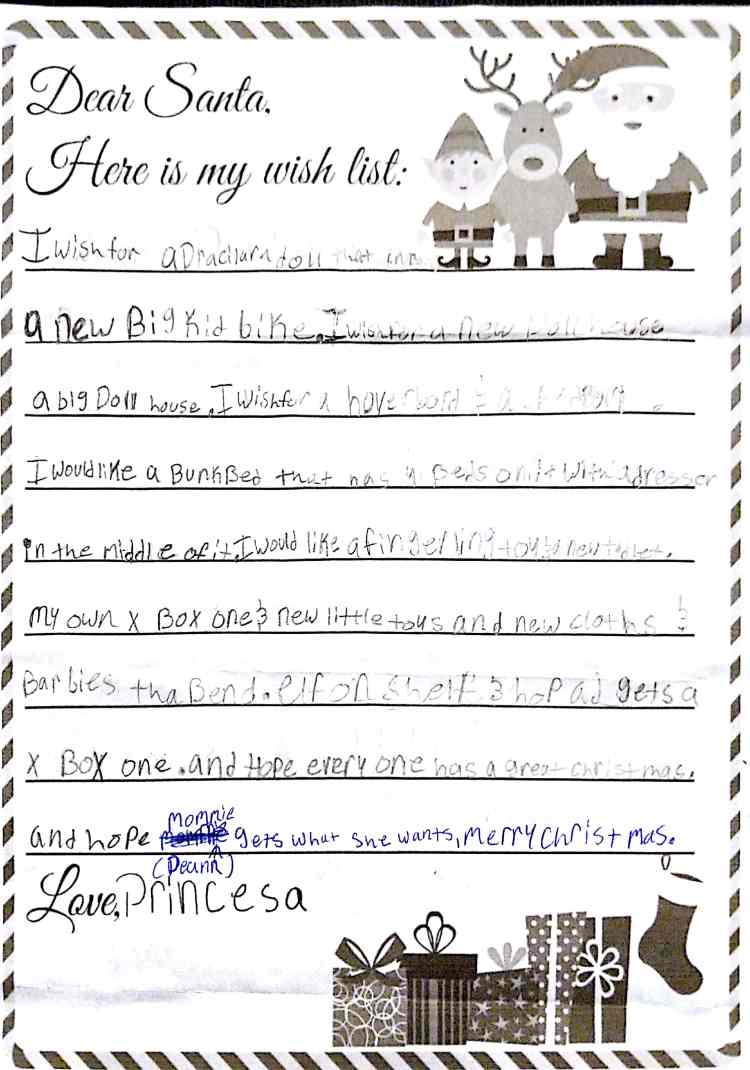 Dear Santa,
Here is my wish list:
I wish for a Draculara doll that
a new Big Kid bike. I wish for a new Doll house
a big Doll house. I wish for a hoverbord & a
I would like a BunkBed that has 4 beds on it with a dresser
in the middle of it. I would like a fingerling toy & new tablet.
My own x Box one & new little toys and new cloths &
Barbies tha Bend. elf on shelf & hop ad gets a
x Box one. and Hope every one has a great christmas.
Mommie
and hope gets what she wants, merry christmas.
(Deann)
Love, Princesa